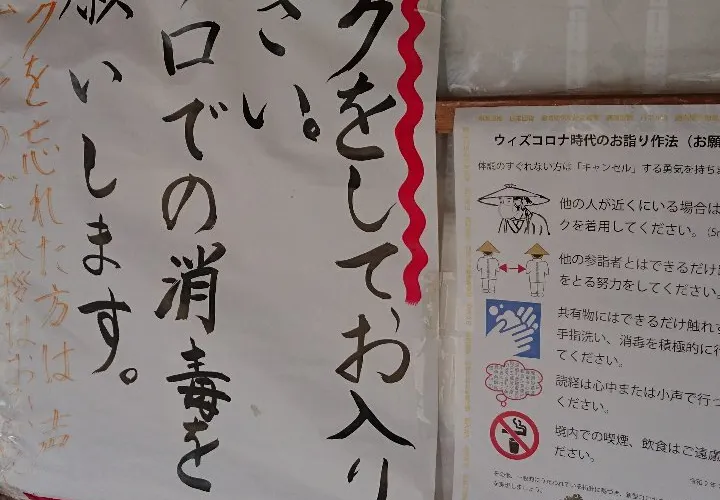 クをしてお入り
さい。
口での消毒を
願いします。
クを忘れた方は
ウィズコロナ時代のお詣り作法（お願
体調のすぐれない方は「キャンセル」する勇気を持ちま
他の人が近くにいる場合は
クを着用してください。（5m
他の参詣者とはできるだけ
をとる努力をしてください。
共有物にはできるだけ触れず
手指洗い、消毒を積極的に行
てください。
読経は心中または小声で行っ
ください。
境内での喫煙、飲食はご遠慮
ださい。